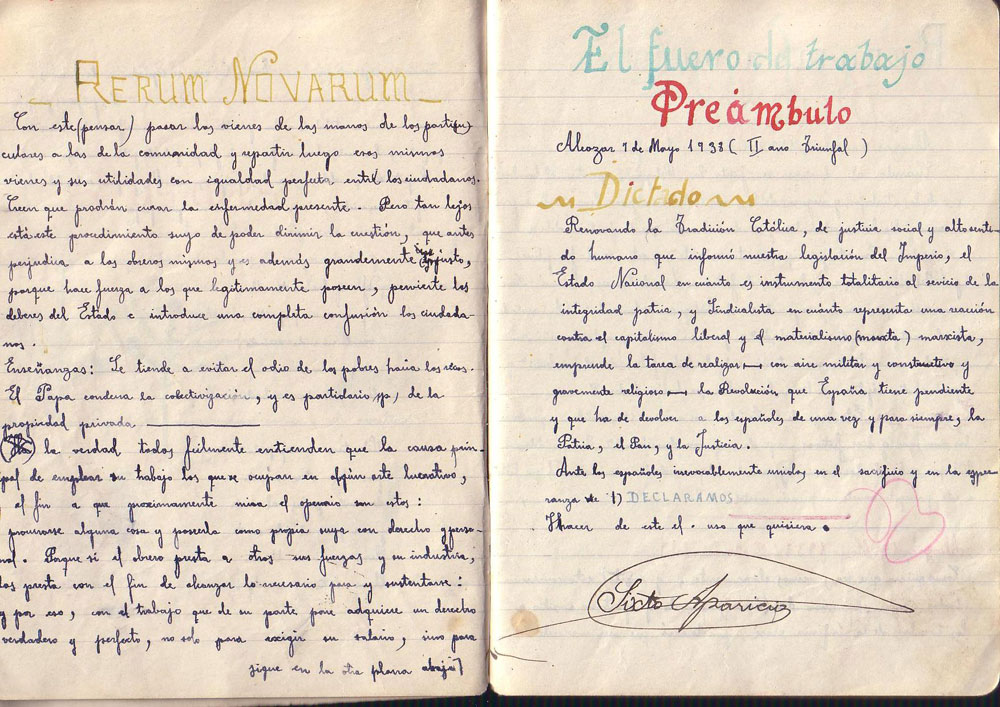 _ RERUM NOVARUM _
Con este (pensar) pasar los vienes de las manos de los parti(cu)
culares a las de la comunidad y repartir luego esos mismos
vienes y sus utilidades con igualdad perfecta entre los ciudadanos.
Creen que prodrán curar la enfermedad presente. Pero tan lejos
está este procedimiento suyo de poder dirimir la cuestión, que antes
perjudica a los obreros mismos y es además grandemente injusto,
porque hace fuerza a los que legitimamente poseen, pervierte los
deberes del Estado e introduce una completa confusión los ciudada-
nos.
Enseñanzas: Se tiende a evitar el odio de los pobres hacia los ricos.
El Papa condena la colectivización, y es partidario, de la
propiedad privada
la verdad todos facilmente entienden que la causa prin-
pal de emplear su trabajo los que se ocupan en algún arte lucrativo,
el fin a que proximamente mira el operario son estos:
procurarse alguna cosa y poseerla como propia suya con derecho y perso-
nal. Porque si el obrero presta a otros sus fuerzas y su industria,
las presta con el fin de alcanzar lo necesario para y sustentarse:
y por eso, con el trabajo que de su parte pone adquiere un derecho
verdadero y perfecto, no solo para exigir su salario, sino para
sigue en la otra plana abajo
El fuero del trabajo
Preámbulo
Alcozar 7 de Mayo 1938 ( II año Triunfal )
Dictado
Renovando la Tradición Católica, de justicia social y alto senti-
do humano que informó nuestra legislación del Imperio, el
Estado Nacional en cuánto es instrumento totalitario al servicio de la
integridad patria, y Sindicalista en cuánto representa una reacción
contra el capitalismo liberal y el materialismo (marxta) marxista,
emprende la tarea de realizar — con aire militar y constructivo y
gravemente religioso — la Revolución que España tiene pendiente
y que ha de devolver a los españoles de una vez y para siempre, la
Patria, el Pan, y la Justicia.
Ante los españoles irrevocablemente unidos en el sacrificio y en la espe-
ranza de 1) DECLARAMOS
Hacer de este el . uso que quisiera.
Sixto Aparicio